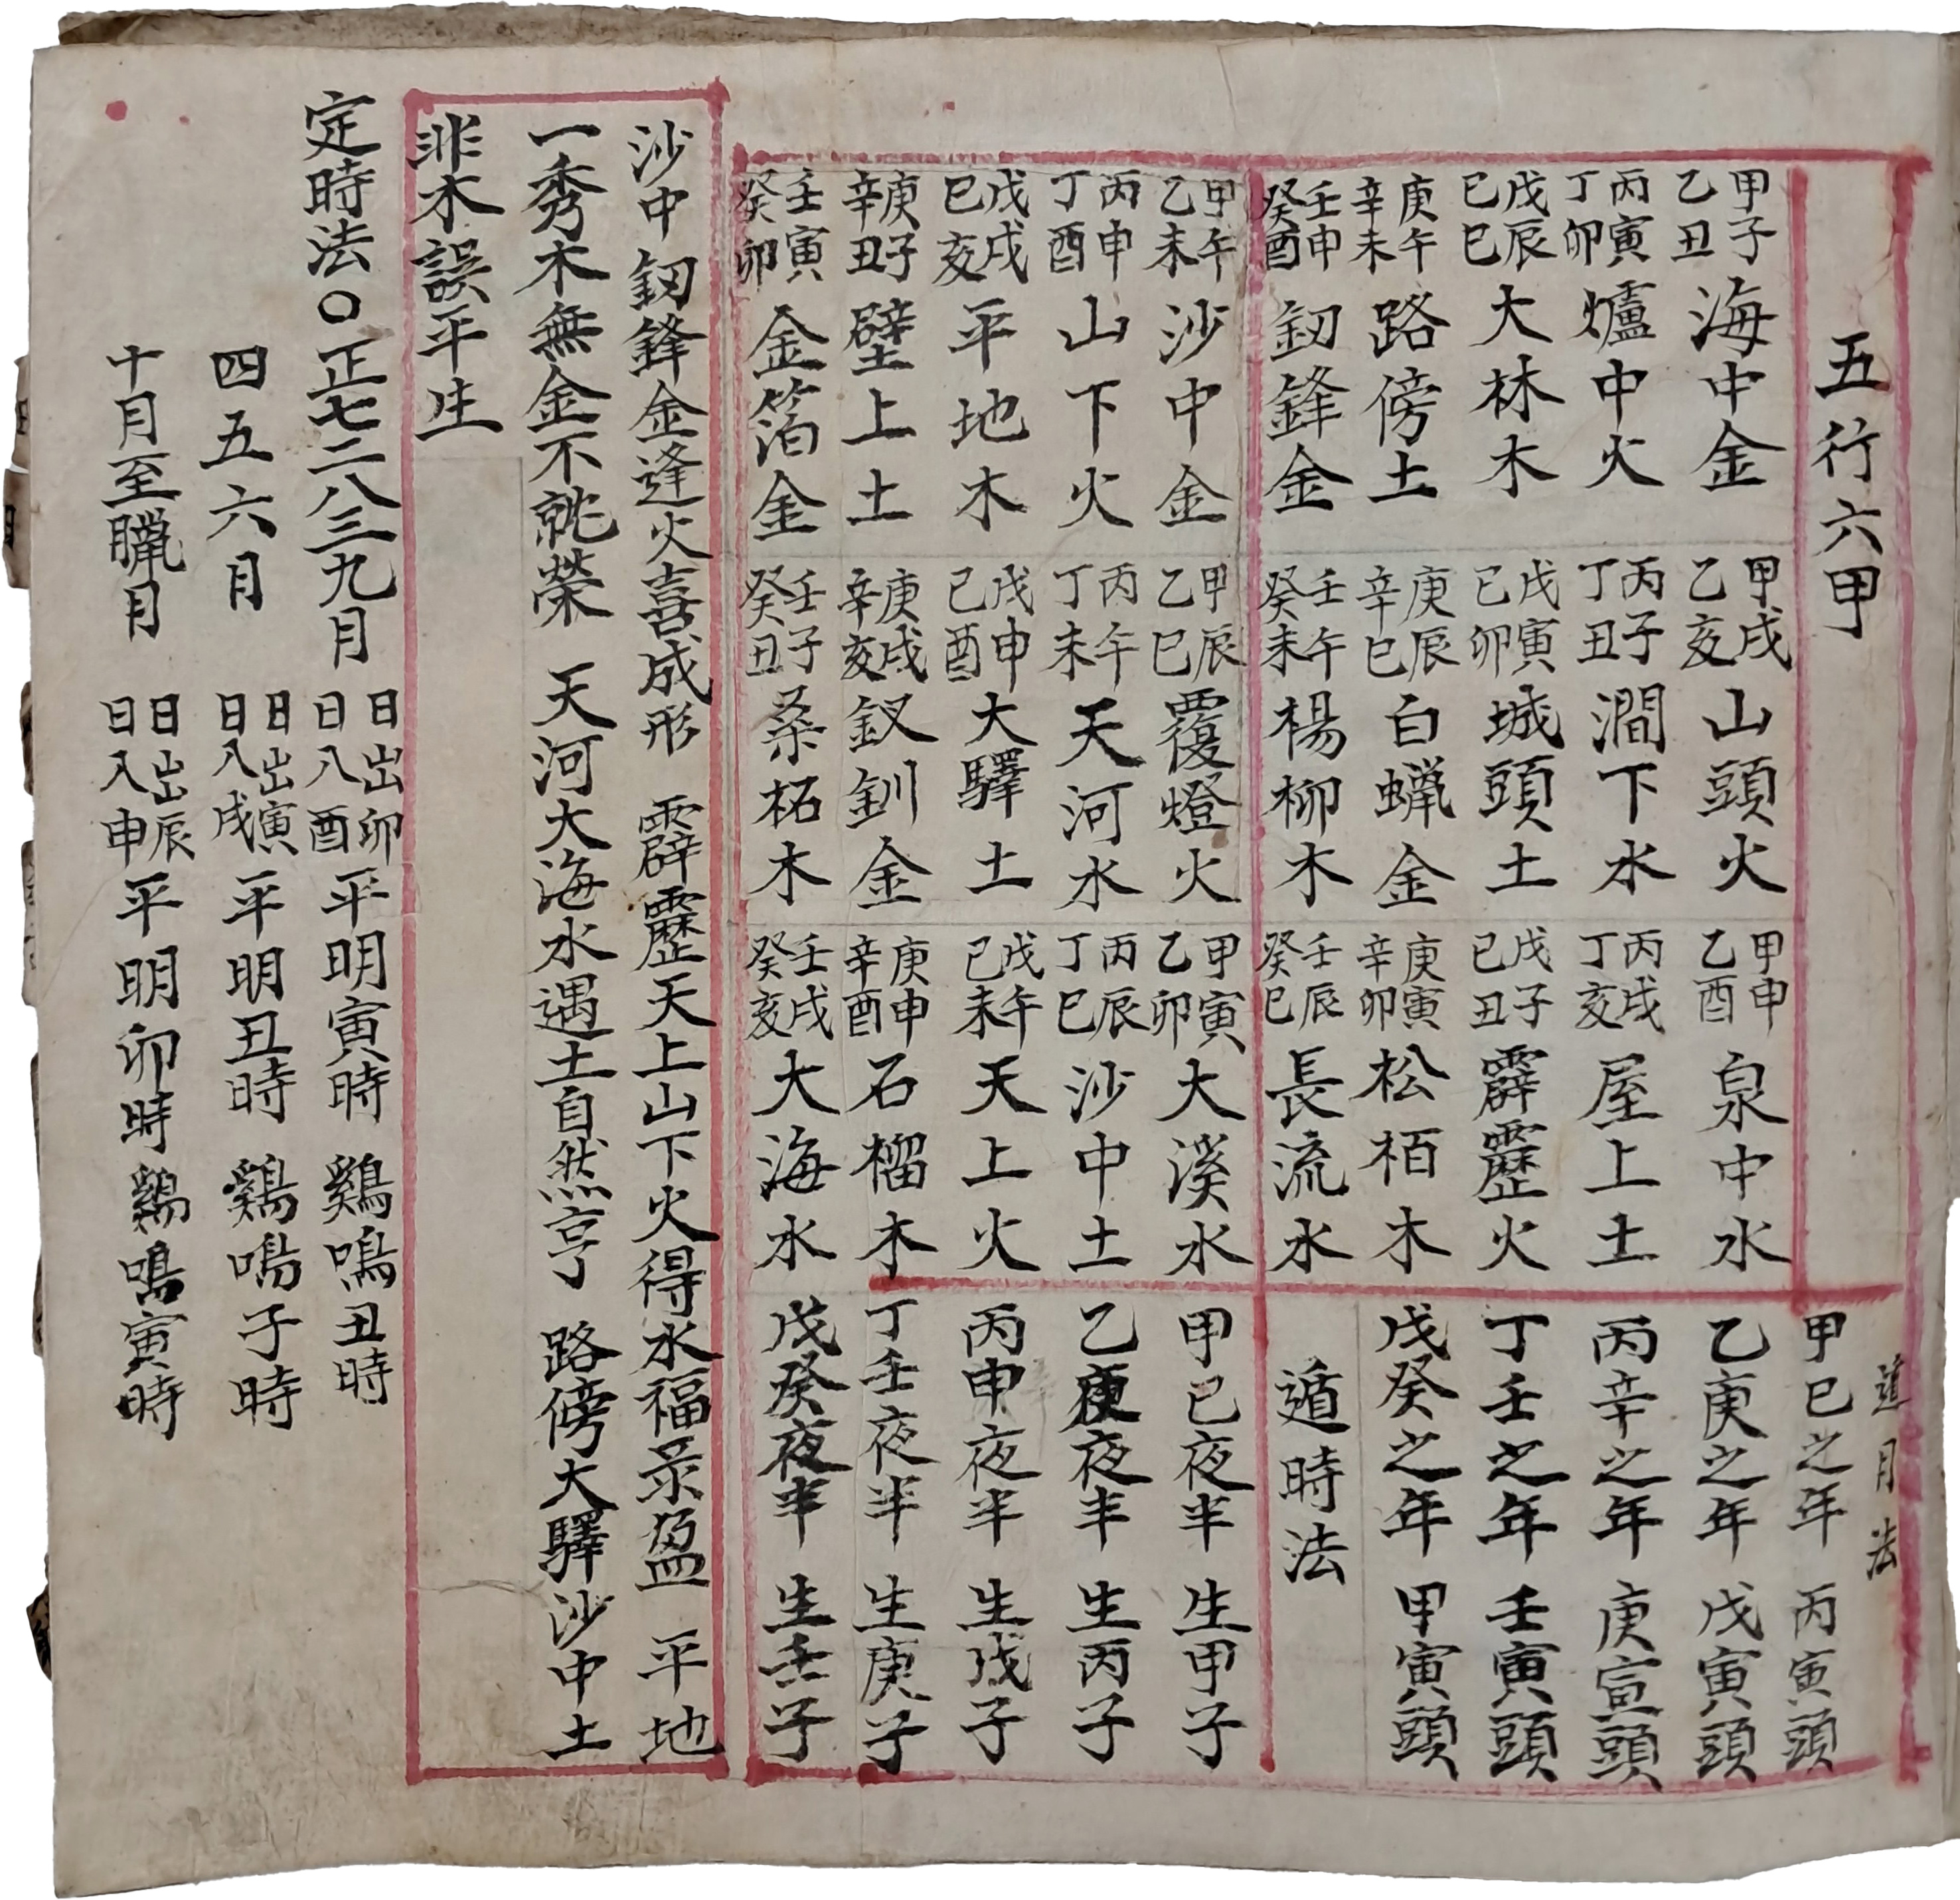 五行六甲
甲子乙丑海中金
丙寅丁卯爐中火
戊辰己巳大林木
庚午辛未路傍土
壬申癸酉釼鋒金
甲戌乙亥山頭火
丙子丁丑澗下水
戊寅己卯城頭土
庚辰辛巳白蠟金
壬午癸未楊柳木
甲申乙酉泉中水
丙戌丁亥屋上土
戊子己丑霹靂火
庚寅辛卯松栢木
壬辰癸巳長流水
甲午乙未沙中金
丙申丁酉山下火
戊戌己亥平地木
庚子辛丑壁上土
壬寅癸卯金箔金
甲辰乙巳覆燈火
丙午丁未天河水
戊申己酉大驛土
庚戌辛亥釵釧金
壬子癸丑桑柘木
甲寅乙卯大溪水
丙辰丁巳沙中土
戊午己未天上火
庚申辛酉石榴木
壬戌癸亥大海水
遁月法
甲己之年 丙寅頭
乙庚之年 戊寅頭
丙辛之年 庚寅頭
丁壬之年 壬寅頭
戊癸之年 甲寅頭
遁時法
甲己夜半 生甲子
乙庚夜半 生丙子
丙申夜半 生戊子
丁壬夜半 生庚子
戊癸夜半 生壬子
沙中釼鋒金逢火喜成形 霹靂天上山下火得水福彔盈 平地
一秀木無金不就榮 天河大海水遇土自然亨 路傍大驛沙中土
非木誤平生
定時法〇正七二八三九月 日出卯日入酉 平明寅時 鷄鳴丑時
四五六月 日出寅日入戌 平明丑時 鷄鳴子時
十月至臘月 日出辰日入申 平明卯時 鷄鳴寅時